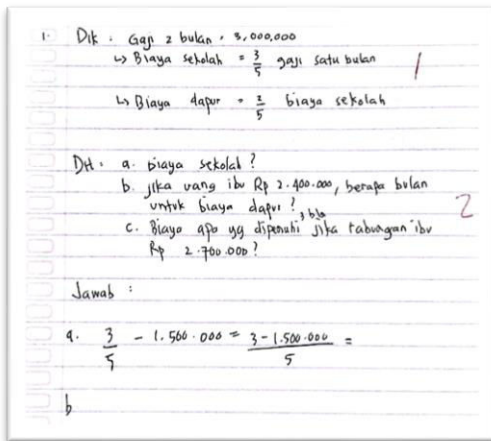 1. Dik : Gaji 2 bulan = 3,000,000
↳ Biaya sekolah = 3/5 gaji satu bulan
1
↳ Biaya dapur = 2/5 biaya sekolah
Dit : a. biaya sekolah?
b. jika uang ibu Rp 2.400.000, berapa bulan
untuk biaya dapur?
2
c. Biaya apa yg dipenuhi 3 bln jika tabungan ibu
Rp 2.700.000?
Jawab :
a. 3/5 - 1.500.000 = 3-1.500.000/5 =
b